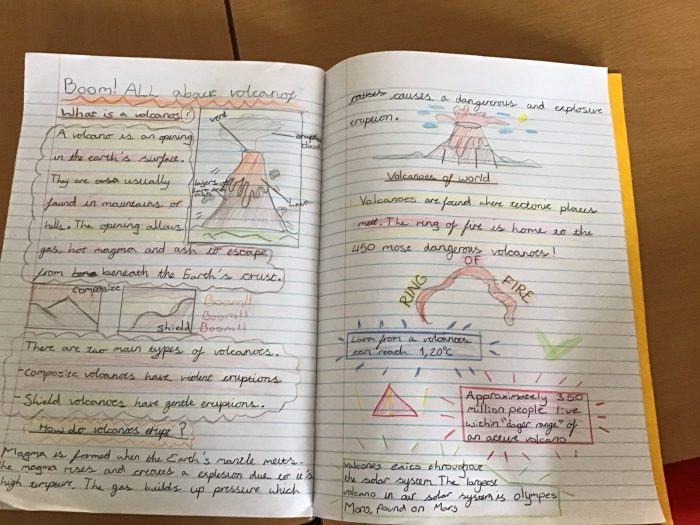 Boom! ALL about volcanos
What is a volcanos?
A volcano is an opening
in the earth's surface.
They are also usually
found in mountains or
hills. The opening allows
gas, hot magma and ash to escape
from beneath the Earth's crust.
vent
eruption
cloud
layers of
lava and
ash
Lava
composize
shield
Boom!!
Boom!!
Boom!!
There are two main types of volcanoes.
-Composite volcanoes have violent eruptions.
-Shield volcanoes have gentle eruptions.
How do volcanoes erupt?
Magma is formed when the Earth's mantle melts.
The magma rises and creates a explosion due to it's
high tempure. The gas builds up pressure which
causes causes a dangerous and explosive
eruption.
Volcanoes of world
Volcanoes are found where tectonic plates
meet. The ring of fire is home to the
450 most dangerous volcanoes!
RING OF FIRE
Lava from a volcanoes
can reach 1,20°C
Approximately 350
million people live
within "dager range" of
an active volcano
Valcanoes exits throughout
the solar system. The largest
volcano in our solar system is olympes
Mons, found on Mars